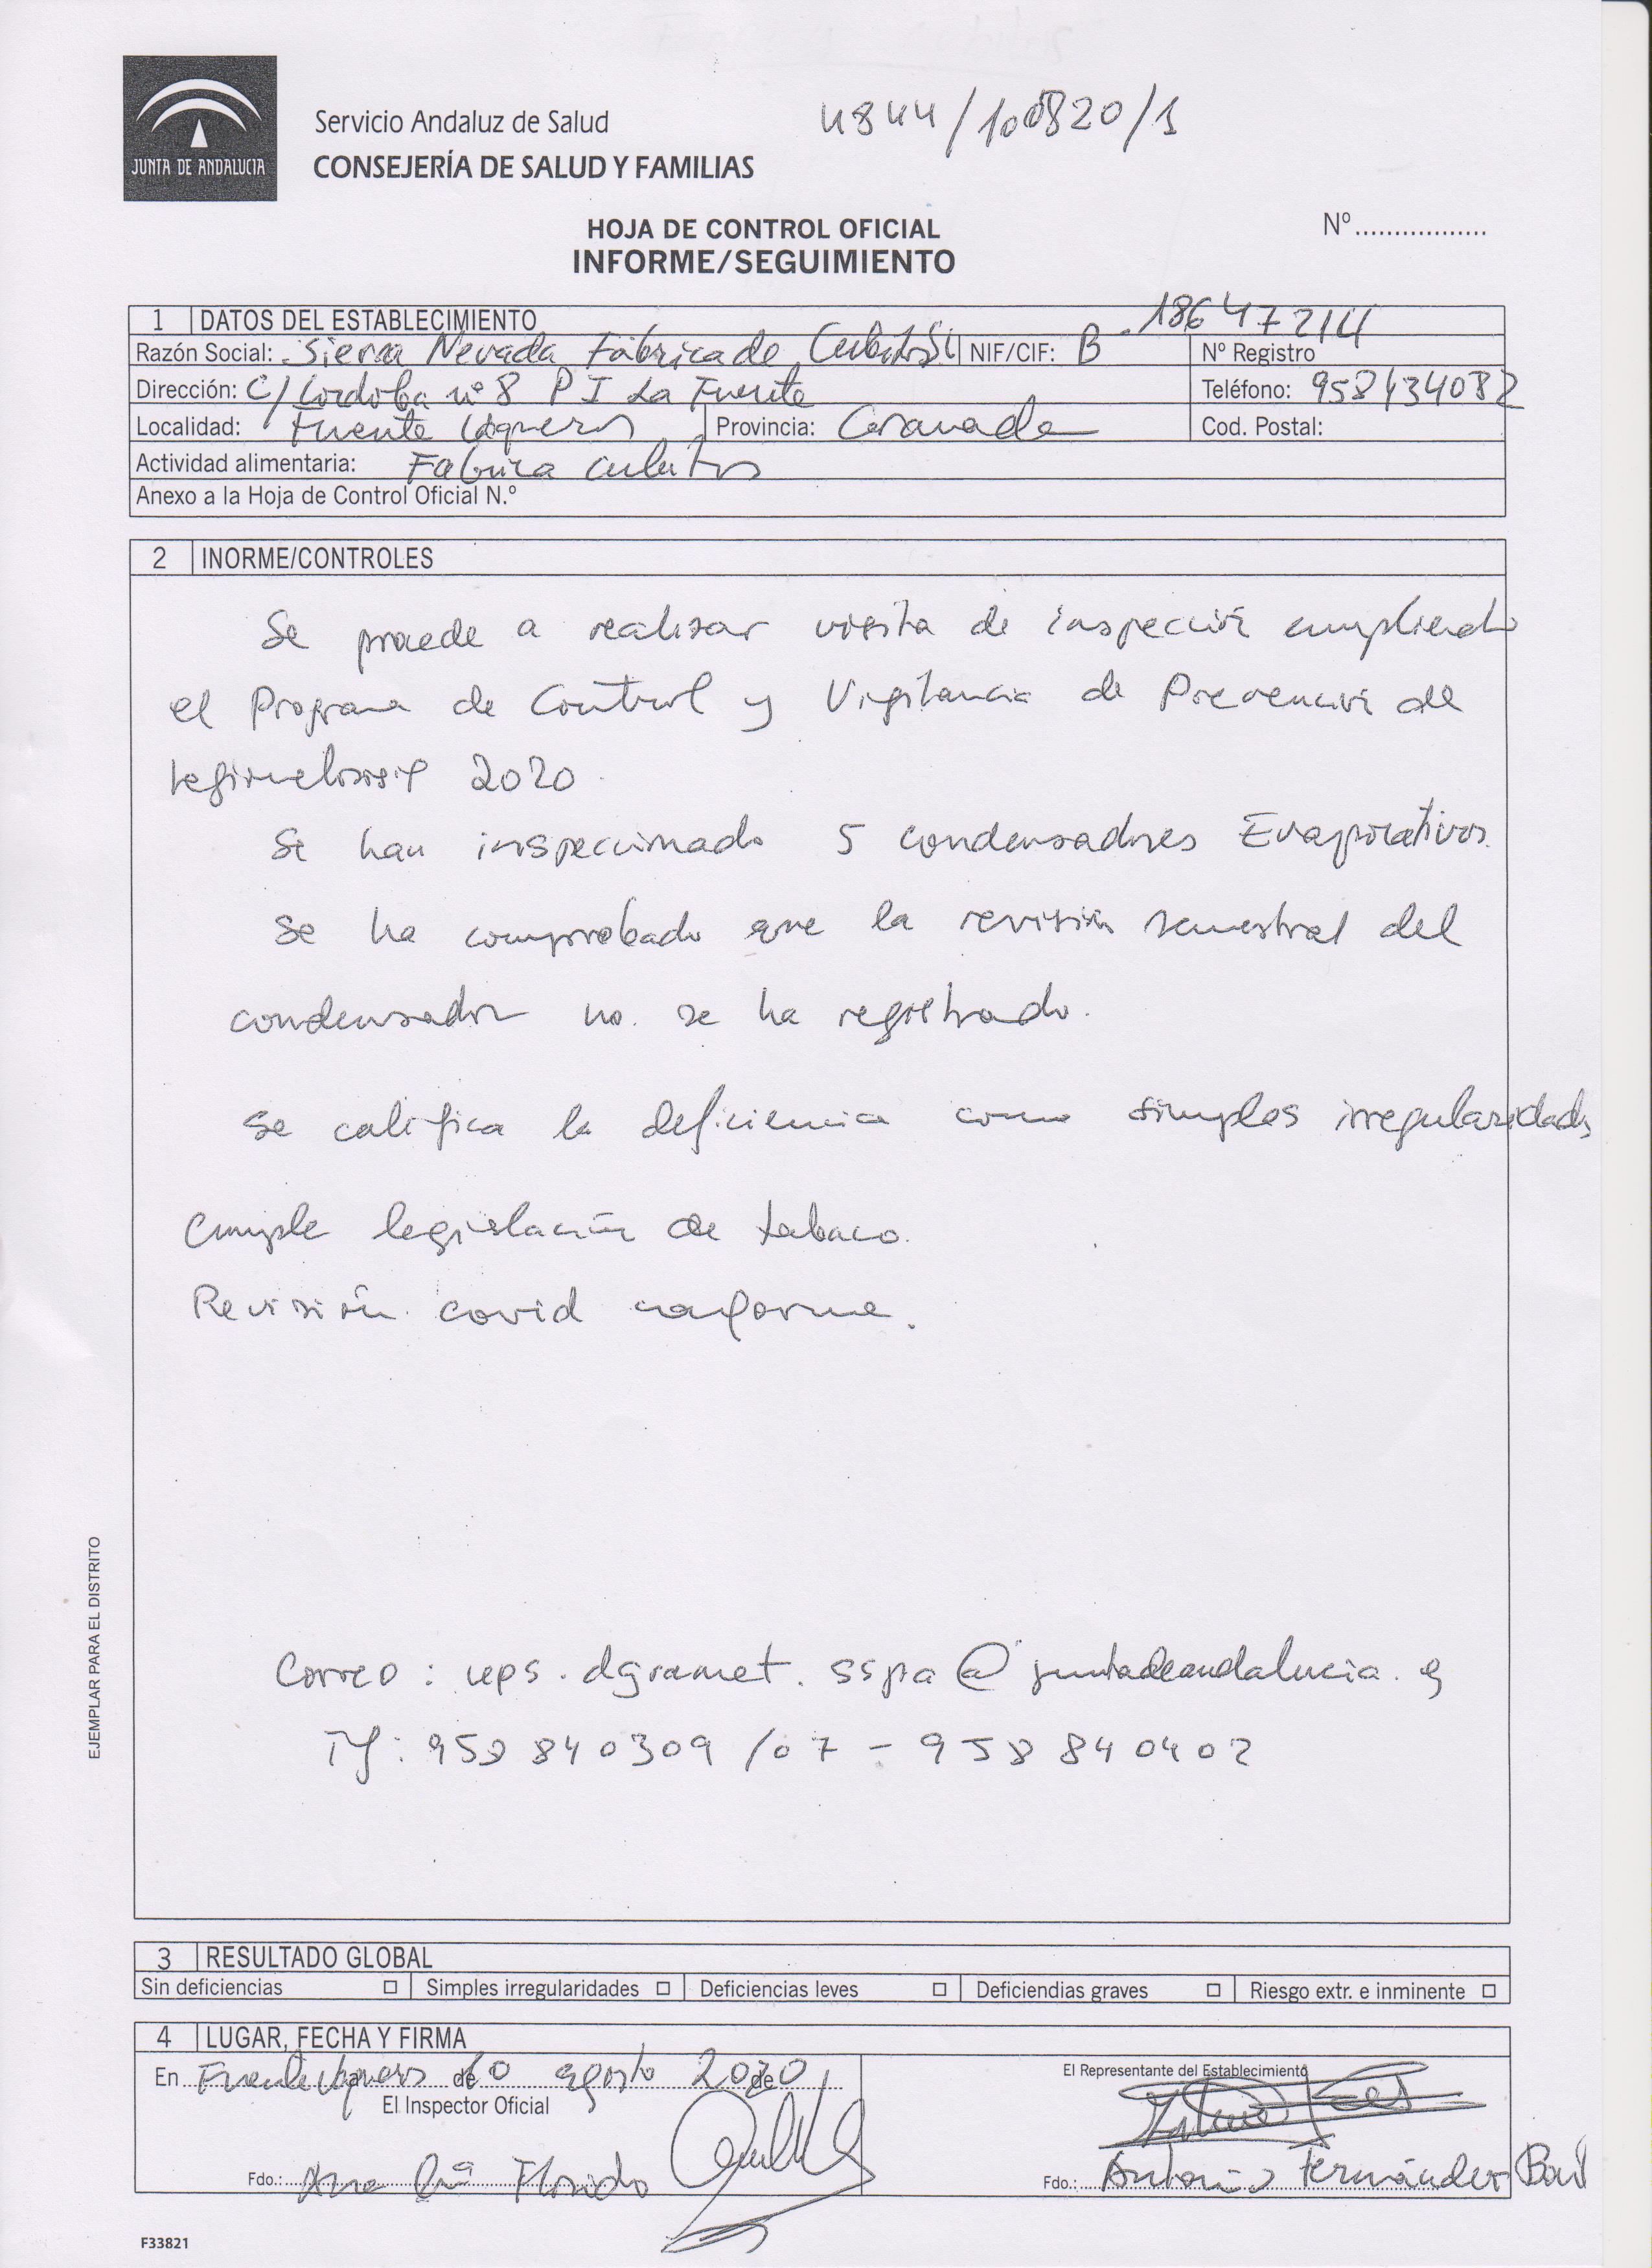 JUNTA DE ANDALUCIA
Servicio Andaluz de Salud
CONSEJERÍA DE SALUD Y FAMILIAS
4844/100820/1
HOJA DE CONTROL OFICIAL
INFORME/SEGUIMIENTO
Nº
1 DATOS DEL ESTABLECIMIENTO
Razón Social: Sierra Nevada Fábrica de Cubitos SL NIF/CIF: B 18647214 Nº Registro
Dirección: C/ Cordoba nº 8 P I La Fuente Teléfono: 958434082
Localidad: Fuente Vaqueros Provincia: Granada Cod. Postal:
Actividad alimentaria: Fabrica cubitos
Anexo a la Hoja de Control Oficial N.º
2 INORME/CONTROLES
Se procede a realizar visita de inspección cumpliendo
el Programa de Control y Vigilancia de Prevención de
Legionelosis 2020.
Se han inspeccionado 5 condensadores Evaporativos.
Se ha comprobado que la revisión semestral del
condensador no se ha registrado.
Se califica la deficiencia como simples irregularidades
Cumple legislación de tabaco.
Revisión covid conforme.
Correo: ups.dgramet.sspa@juntadeandalucia.es
Tf: 958 840309 /07 - 958 840402
EJEMPLAR PARA EL DISTRITO
3 RESULTADO GLOBAL
Sin deficiencias □ Simples irregularidades □ Deficiencias leves □ Deficiendias graves □ Riesgo extr. e inminente □
4 LUGAR, FECHA Y FIRMA
En Fuente Vaqueros de 10 agosto de 2020
El Representante del Establecimiento
El Inspector Oficial
Fdo.: Ana Mª Florido
Fdo.: Antonio Fernández
F33821